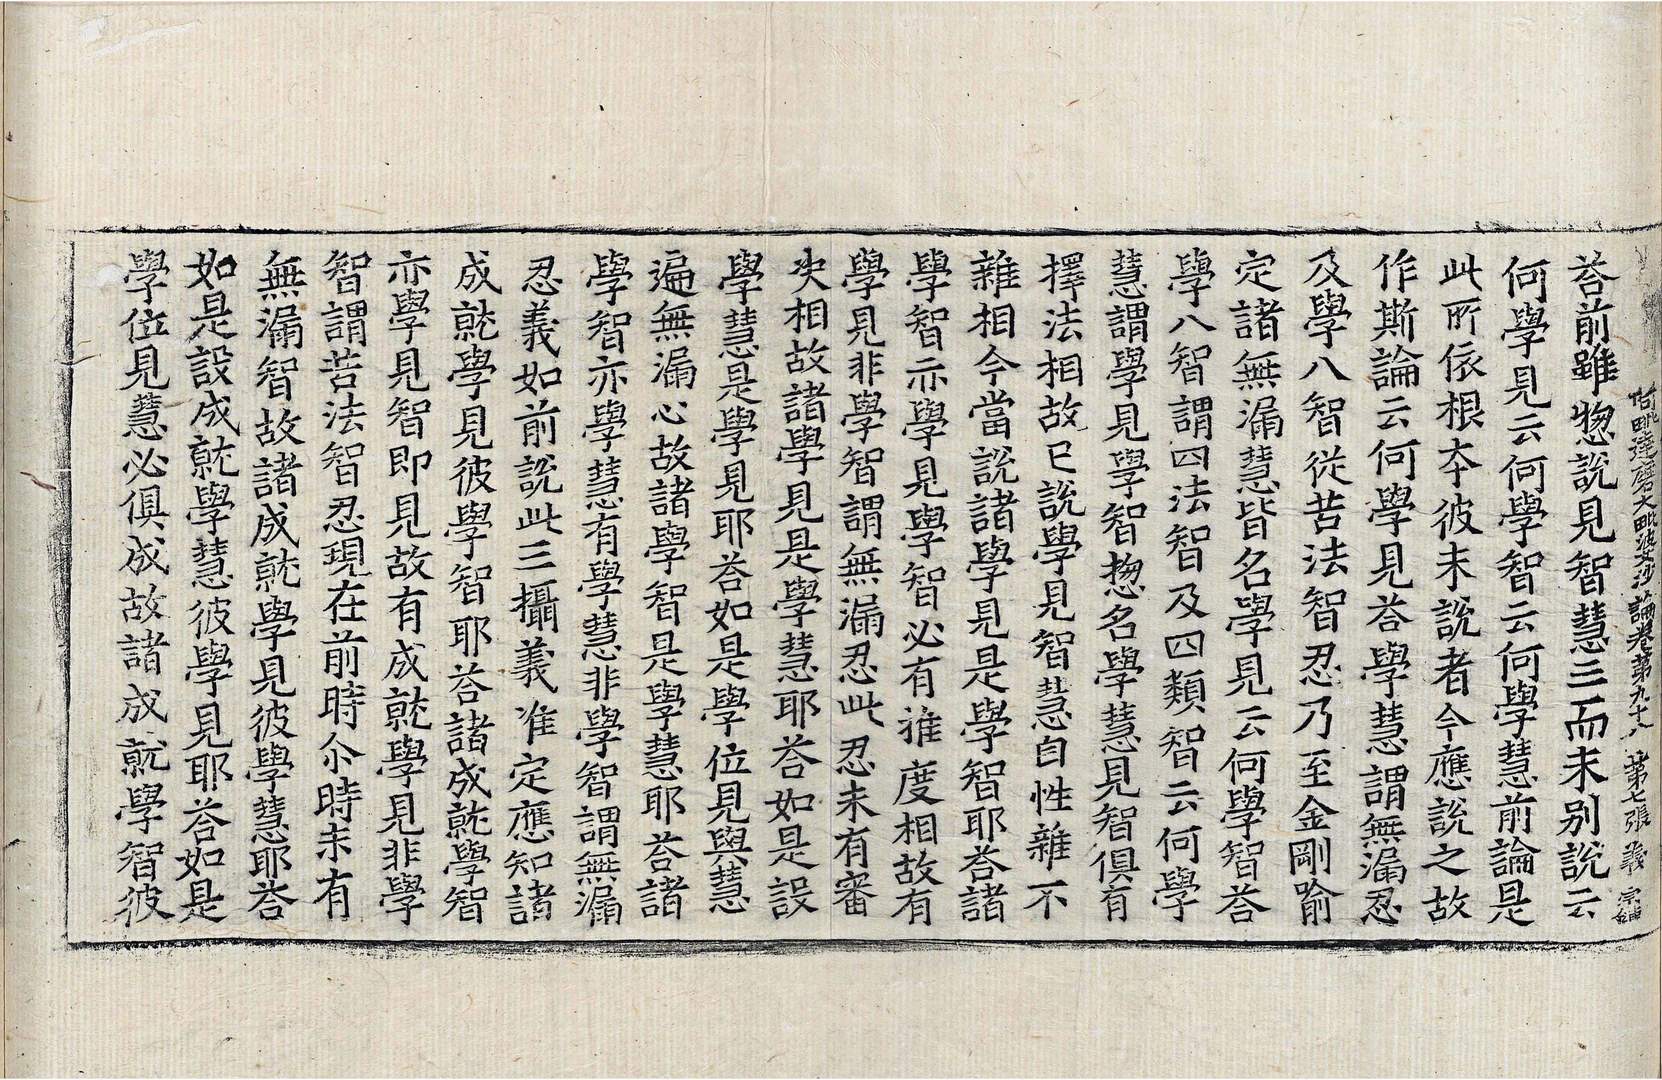 阿毗達磨大毗婆沙論卷第九十八 第七張 義
荅前雖惣說見智慧三而未别說云
何學見云何學智云何學慧前論是
此所依根夲彼未說者今應說之故
作斯論云何學見荅學慧謂無漏忍
及學八智從苦法智忍乃至金剛喻
定諸無漏慧皆名學見云何學智荅
學八智謂四法智及四類智云何學
慧謂學見學智惣名學慧見智俱有
擇法相故已說學見智慧自性雜不
雜相今當說諸學見是學智耶荅諸
學智亦學見學智必有推度相故有
學見非學智謂無漏忍此忍未有審
决相故諸學見是學慧耶荅如是設
學慧是學見耶荅如是學位見與慧
遍無漏心故諸學智是學慧耶荅諸
學智亦學慧有學慧非學智謂無漏
忍義如前說此三攝義准定應知諸
成就學見彼學智耶荅諸成就學智
亦學見智即見故有成就學見非學
智謂苦法智忍現在前時尒時未有
無漏智故諸成就學見彼學慧耶荅
如是設成就學慧彼學見耶荅如是
學位見慧必俱成故諸成就學智彼